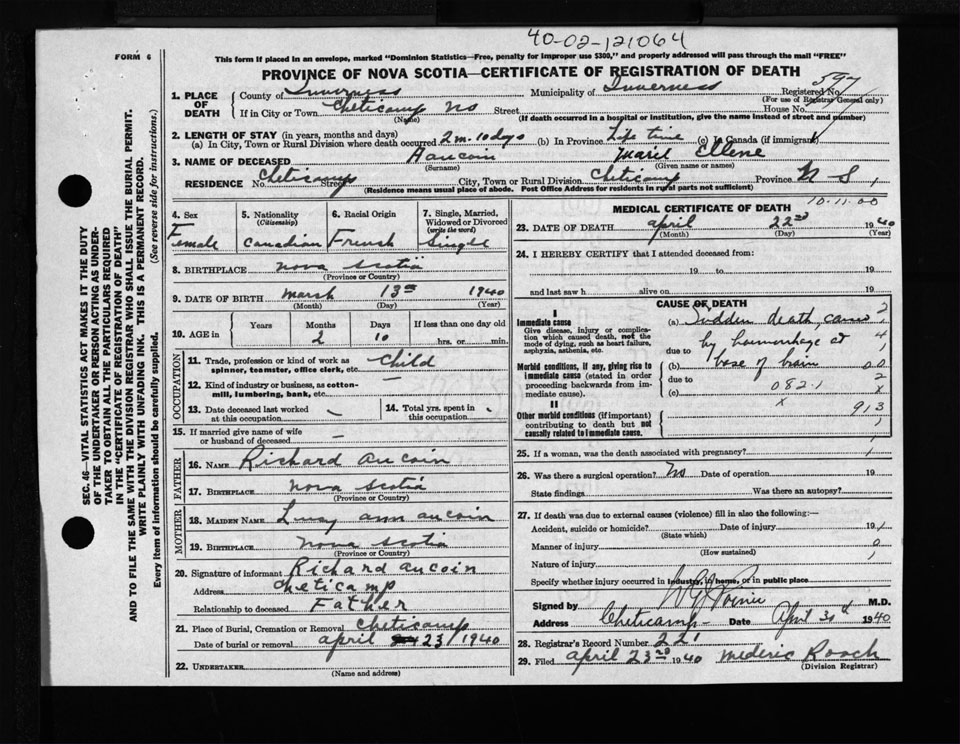 40-02-121064
FORM 6
This form if placed in an envelope, marked "Dominion Statistics—Free, penalty for improper use $300," and properly addressed will pass through the mail "FREE"
PROVINCE OF NOVA SCOTIA—CERTIFICATE OF REGISTRATION OF DEATH
SEC. 46—VITAL STATISTICS ACT MAKES IT THE DUTY
OF THE UNDERTAKER OR PERSON ACTING AS UNDER-
TAKER TO OBTAIN ALL THE PARTICULARS REQUIRED
IN THE "CERTIFICATE OF REGISTRATION OF DEATH"
AND TO FILE THE SAME WITH THE DIVISION REGISTRAR WHO SHALL ISSUE THE BURIAL PERMIT.
WRITE PLAINLY WITH UNFADING INK. THIS IS A PERMANENT RECORD.
Every item of information should be carefully supplied. (See reverse side for instructions.)
1. PLACE OF DEATH County of Inverness Municipality of Inverness Registered No. 597
(For use of Registrar General only)
If in City or Town Cheticamp NS Street House No.
(Name) (If death occurred in a hospital or institution, give the name instead of street and number)
2. LENGTH OF STAY (in years, months and days)
(a) In City, Town or Rural Division where death occurred 2 m. 10 dys (b) In Province Life time (c) In Canada (if immigrant)
3. NAME OF DECEASED Aaucoin Marie Ellene
(Surname) (Given name or names)
RESIDENCE No. Cheticamp Street City, Town or Rural Division Cheticamp Province N S
(Residence means usual place of abode. Post Office Address for residents in rural parts not sufficient)
4. Sex Female
5. Nationality (Citizenship) Canadian
6. Racial Origin French
7. Single, Married, Widowed or Divorced (write the word) Single
8. BIRTHPLACE nova scotia
(Province or Country)
9. DATE OF BIRTH Marsh 13th 1940
(Month) (Day) (Year)
10. AGE in Years Months 2 Days 10 If less than one day old hrs. or min.
OCCUPATION
11. Trade, profession or kind of work as spinner, teamster, office clerk, etc. child
12. Kind of industry or business, as cotton-mill, lumbering, bank, etc. —
13. Date deceased last worked at this occupation -
14. Total yrs. spent in this occupation -
15. If married give name of wife or husband of deceased —
FATHER
16. NAME Richard aucoin
17. BIRTHPLACE nova scotia
(Province or Country)
MOTHER
18. MAIDEN NAME Lucy ann aucoin
19. BIRTHPLACE nova scotia
(Province or Country)
20. Signature of informant Richard aucoin
Address Cheticamp
Relationship to deceased Father
21. Place of Burial, Cremation or Removal Cheticamp
Date of burial or removal april 23 1940
22. UNDERTAKER
(Name and address)
MEDICAL CERTIFICATE OF DEATH
10-11-00
23. DATE OF DEATH april 22nd 1940
(Month) (Day) (Year)
24. I HEREBY CERTIFY that I attended deceased from:
19 to 19
and last saw h alive on 19
CAUSE OF DEATH
I
Immediate cause
Give disease, injury or complication which caused death, not the mode of dying, such as heart failure, asphyxia, asthenia, etc.
Morbid conditions, if any, giving rise to immediate cause (stated in order proceeding backwards from immediate cause).
II
Other morbid conditions (if important) contributing to death but not causally related to immediate cause.
(a) Sudden death,
due to by hemorrhage at
(b) base of brain
due to
(c) 082.1
913
25. If a woman, was the death associated with pregnancy?
26. Was there a surgical operation? No Date of operation 19
State findings Was there an autopsy?
27. If death was due to external causes (violence) fill in also the following:—
Accident, suicide or homicide? Date of injury 19
(State which)
Manner of injury
(How sustained)
Nature of injury
Specify whether injury occurred in industry, in home, or in public place
Signed by M.D.
Address Cheticamp Date April 1940
28. Registrar's Record Number 221
29. Filed april 23rd 1940 Mederic Roach
(Division Registrar)